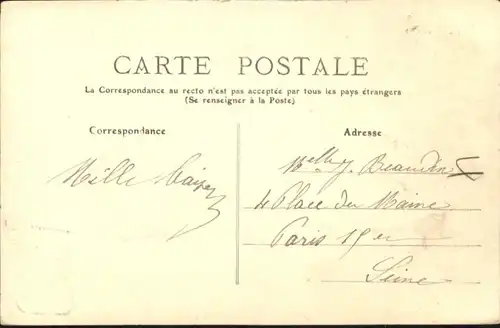 CARTE POSTALE
La Correspondance au recto n'est pas acceptée par tous les pays étrangers
(Se renseigner à la Poste)
Correspondance
Adresse
Mille baisers
Melle J. Beaudin
4 Place du Maine
Paris 15e
Seine